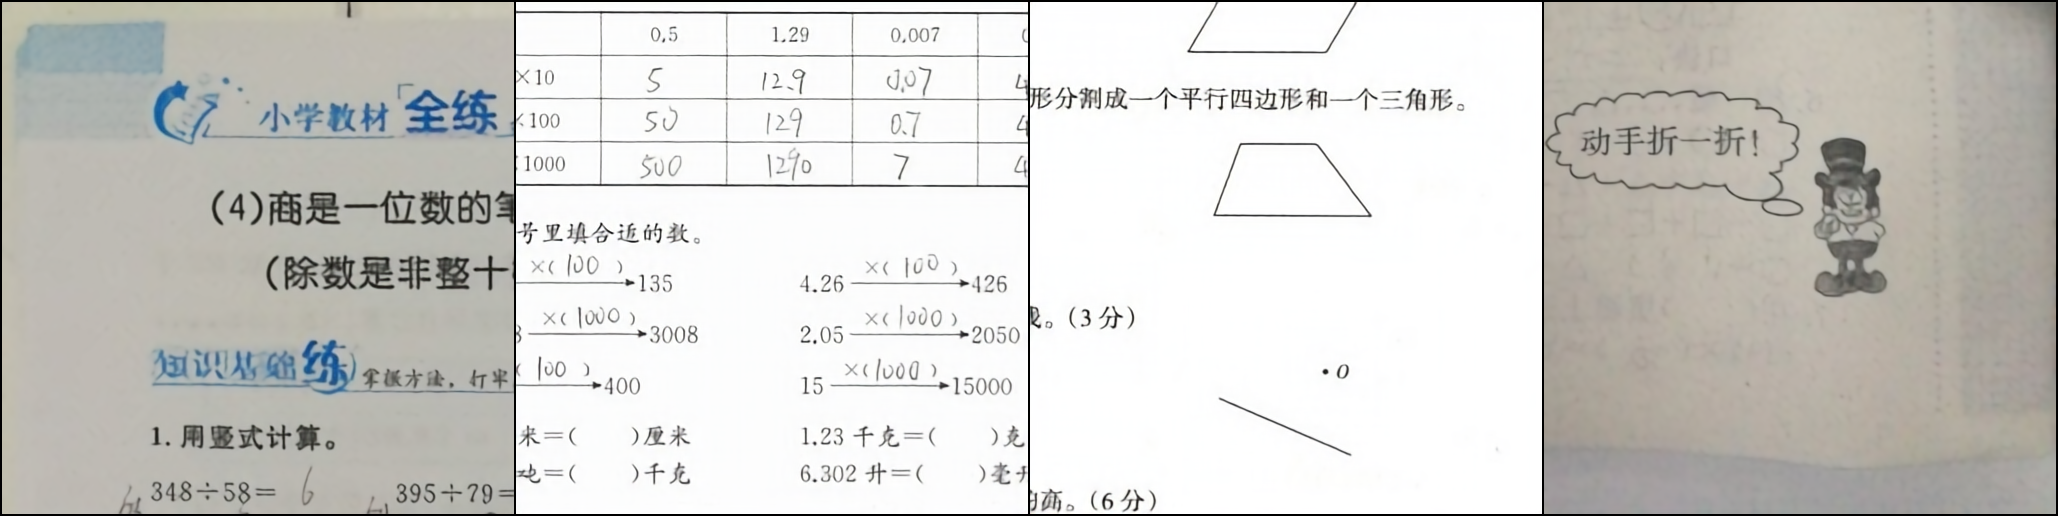 小学教材「全练
(4)商是一位数的笔
(除数是非整十
知识基础练 掌握方法，打牢
1. 用竖式计算。
348÷58= 6 395÷79=
0.5 1.29 0.007
×10 5 12.9 0.07 4
×100 50 129 0.7 4
1000 500 1290 7 4
号里填合适的数。
×(100) 135 4.26 ×(100) 426
×(1000) 3008 2.05 ×(1000) 2050
(100) 400 15 ×(1000) 15000
米=( )厘米 1.23 千克=( )克
吨=( )千克 6.302 升=( )毫升
形分割成一个平行四边形和一个三角形。
。(3 分)
·O
的商。(6 分)
动手折一折！